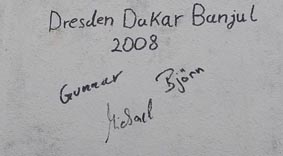 Dresden Dakar Banjul
2008
Gunnar Björn
Michael